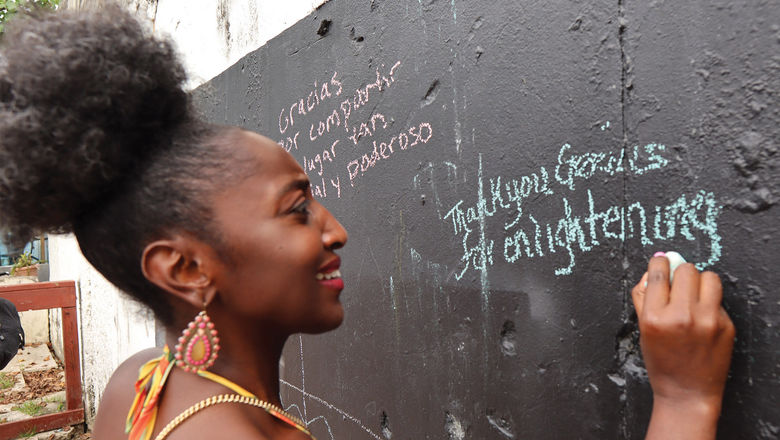 Gracias
por compartir
lugar tan
al y poderoso
Thank you Gracias
for enlightening